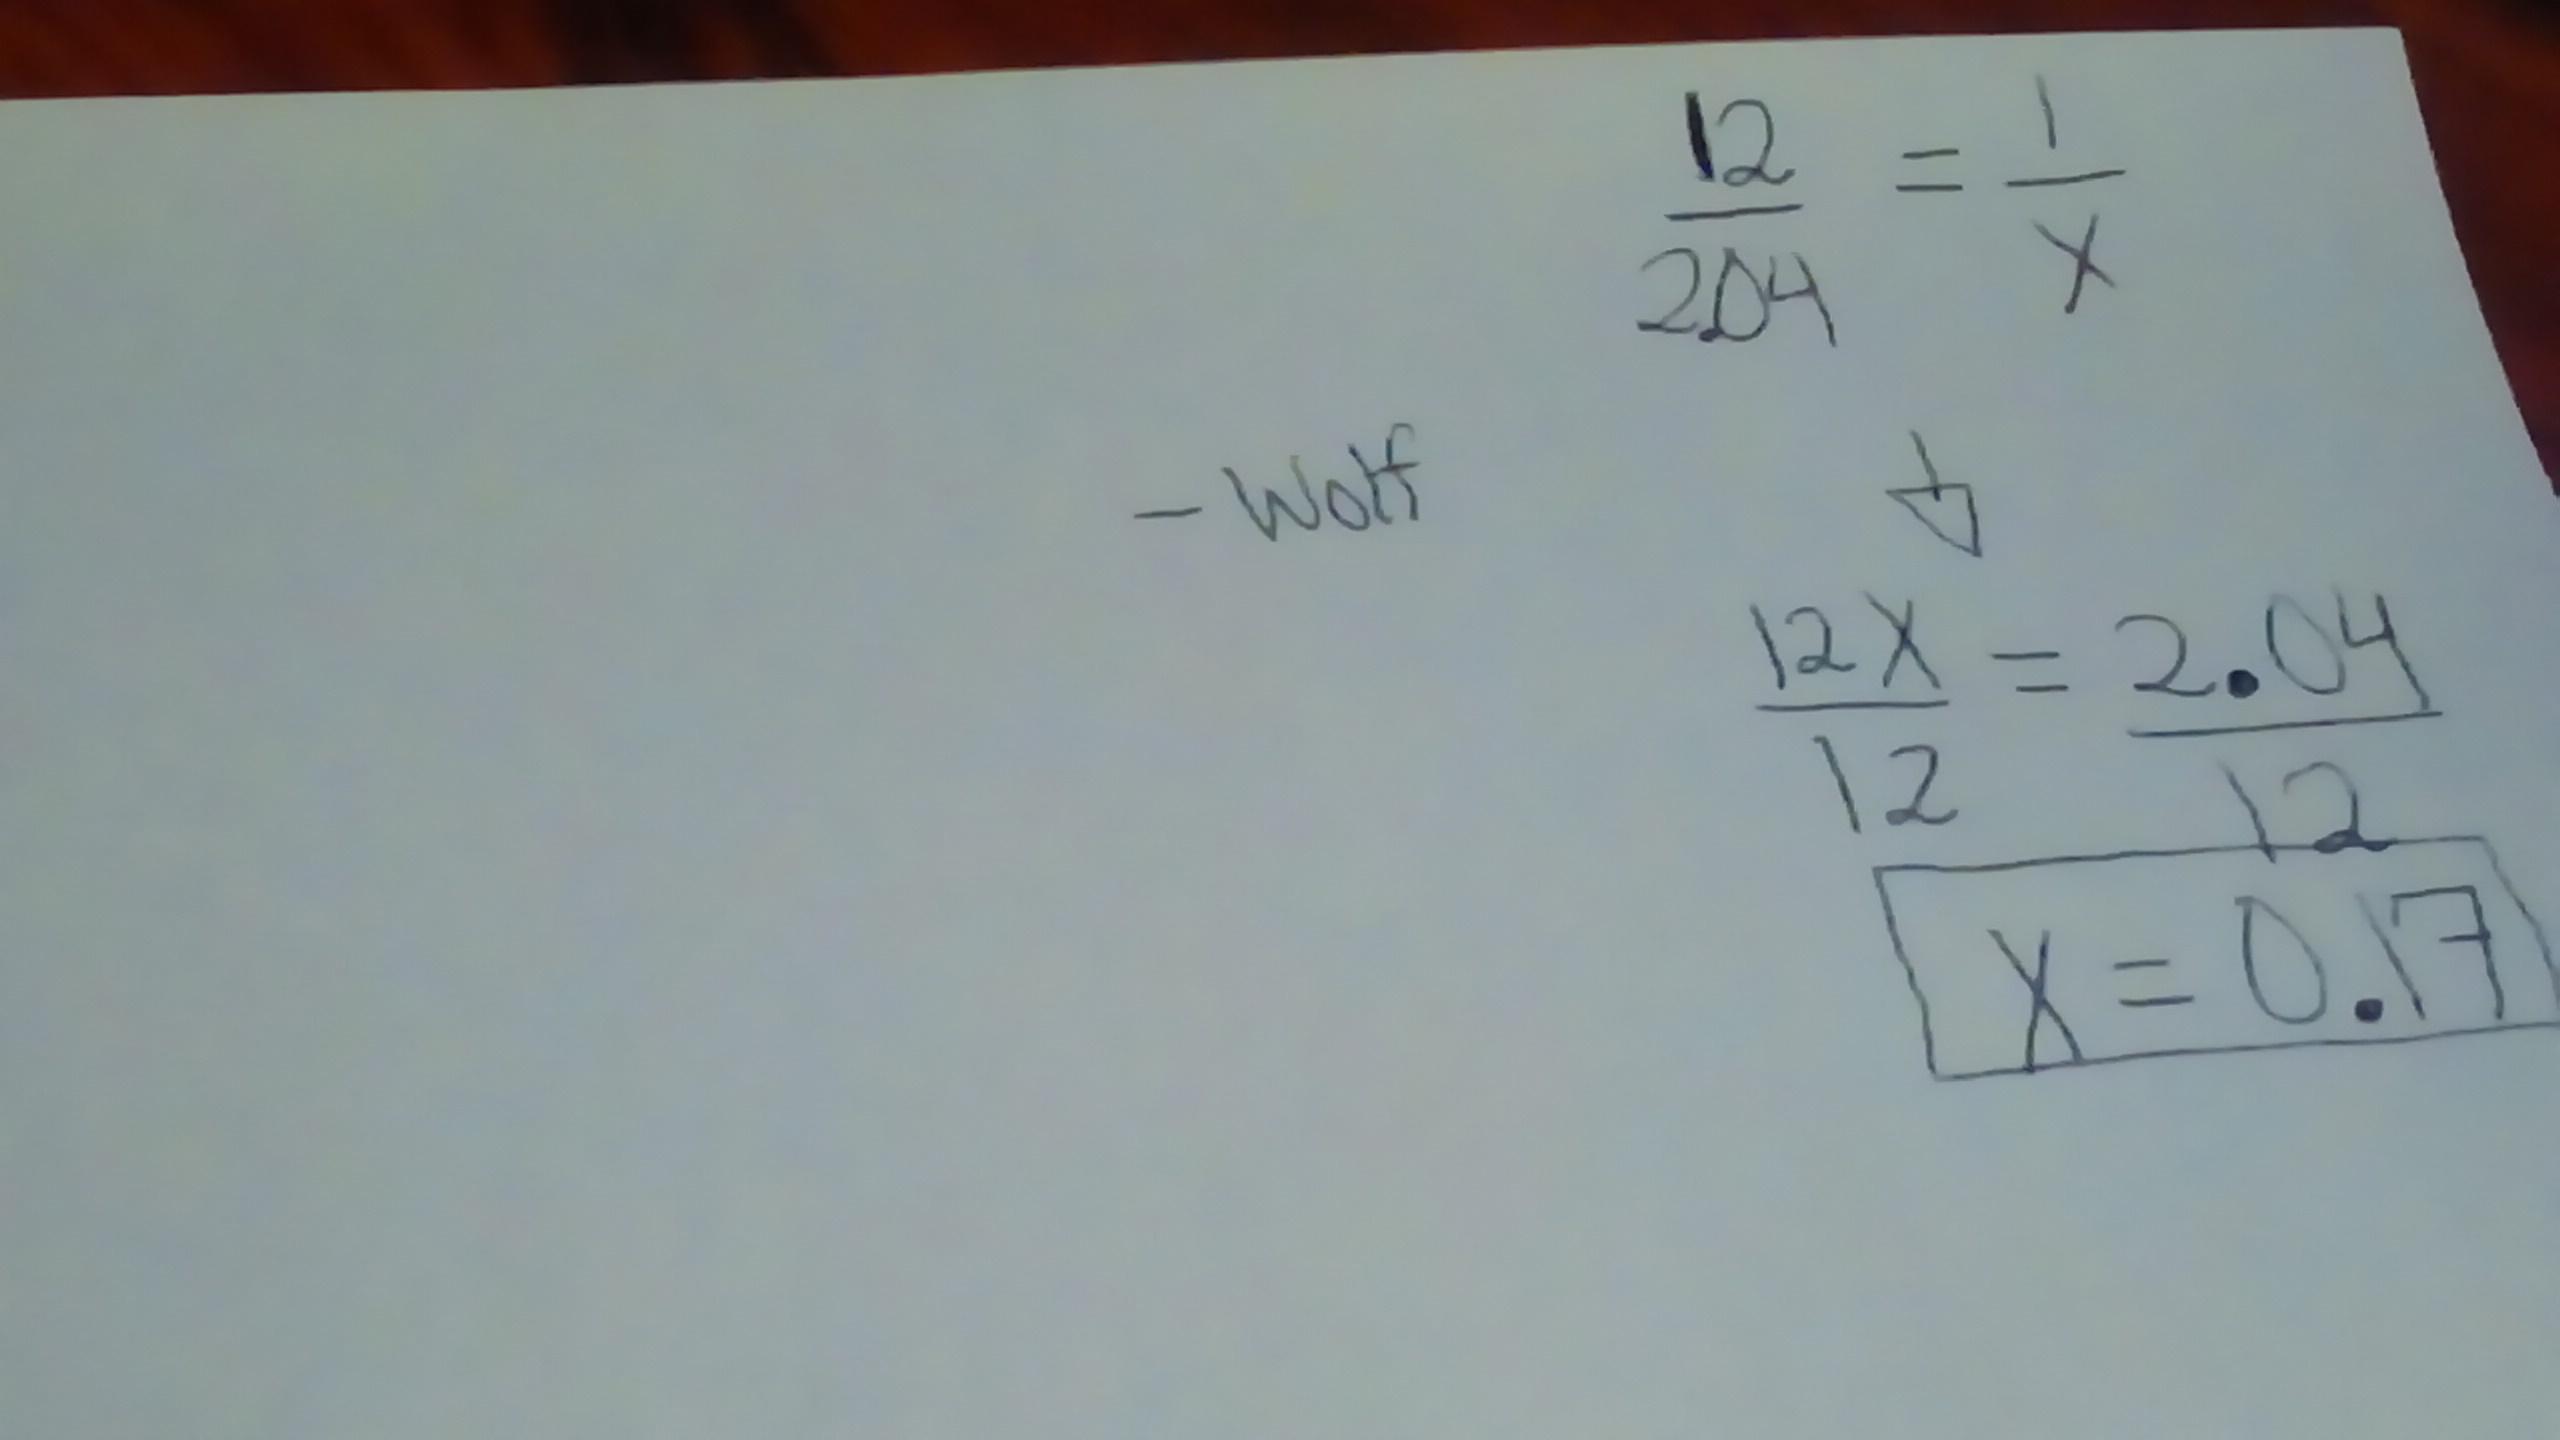 12/2.04 = 1/x
- Wolf
12x/12 = 2.04/12
x = 0.17